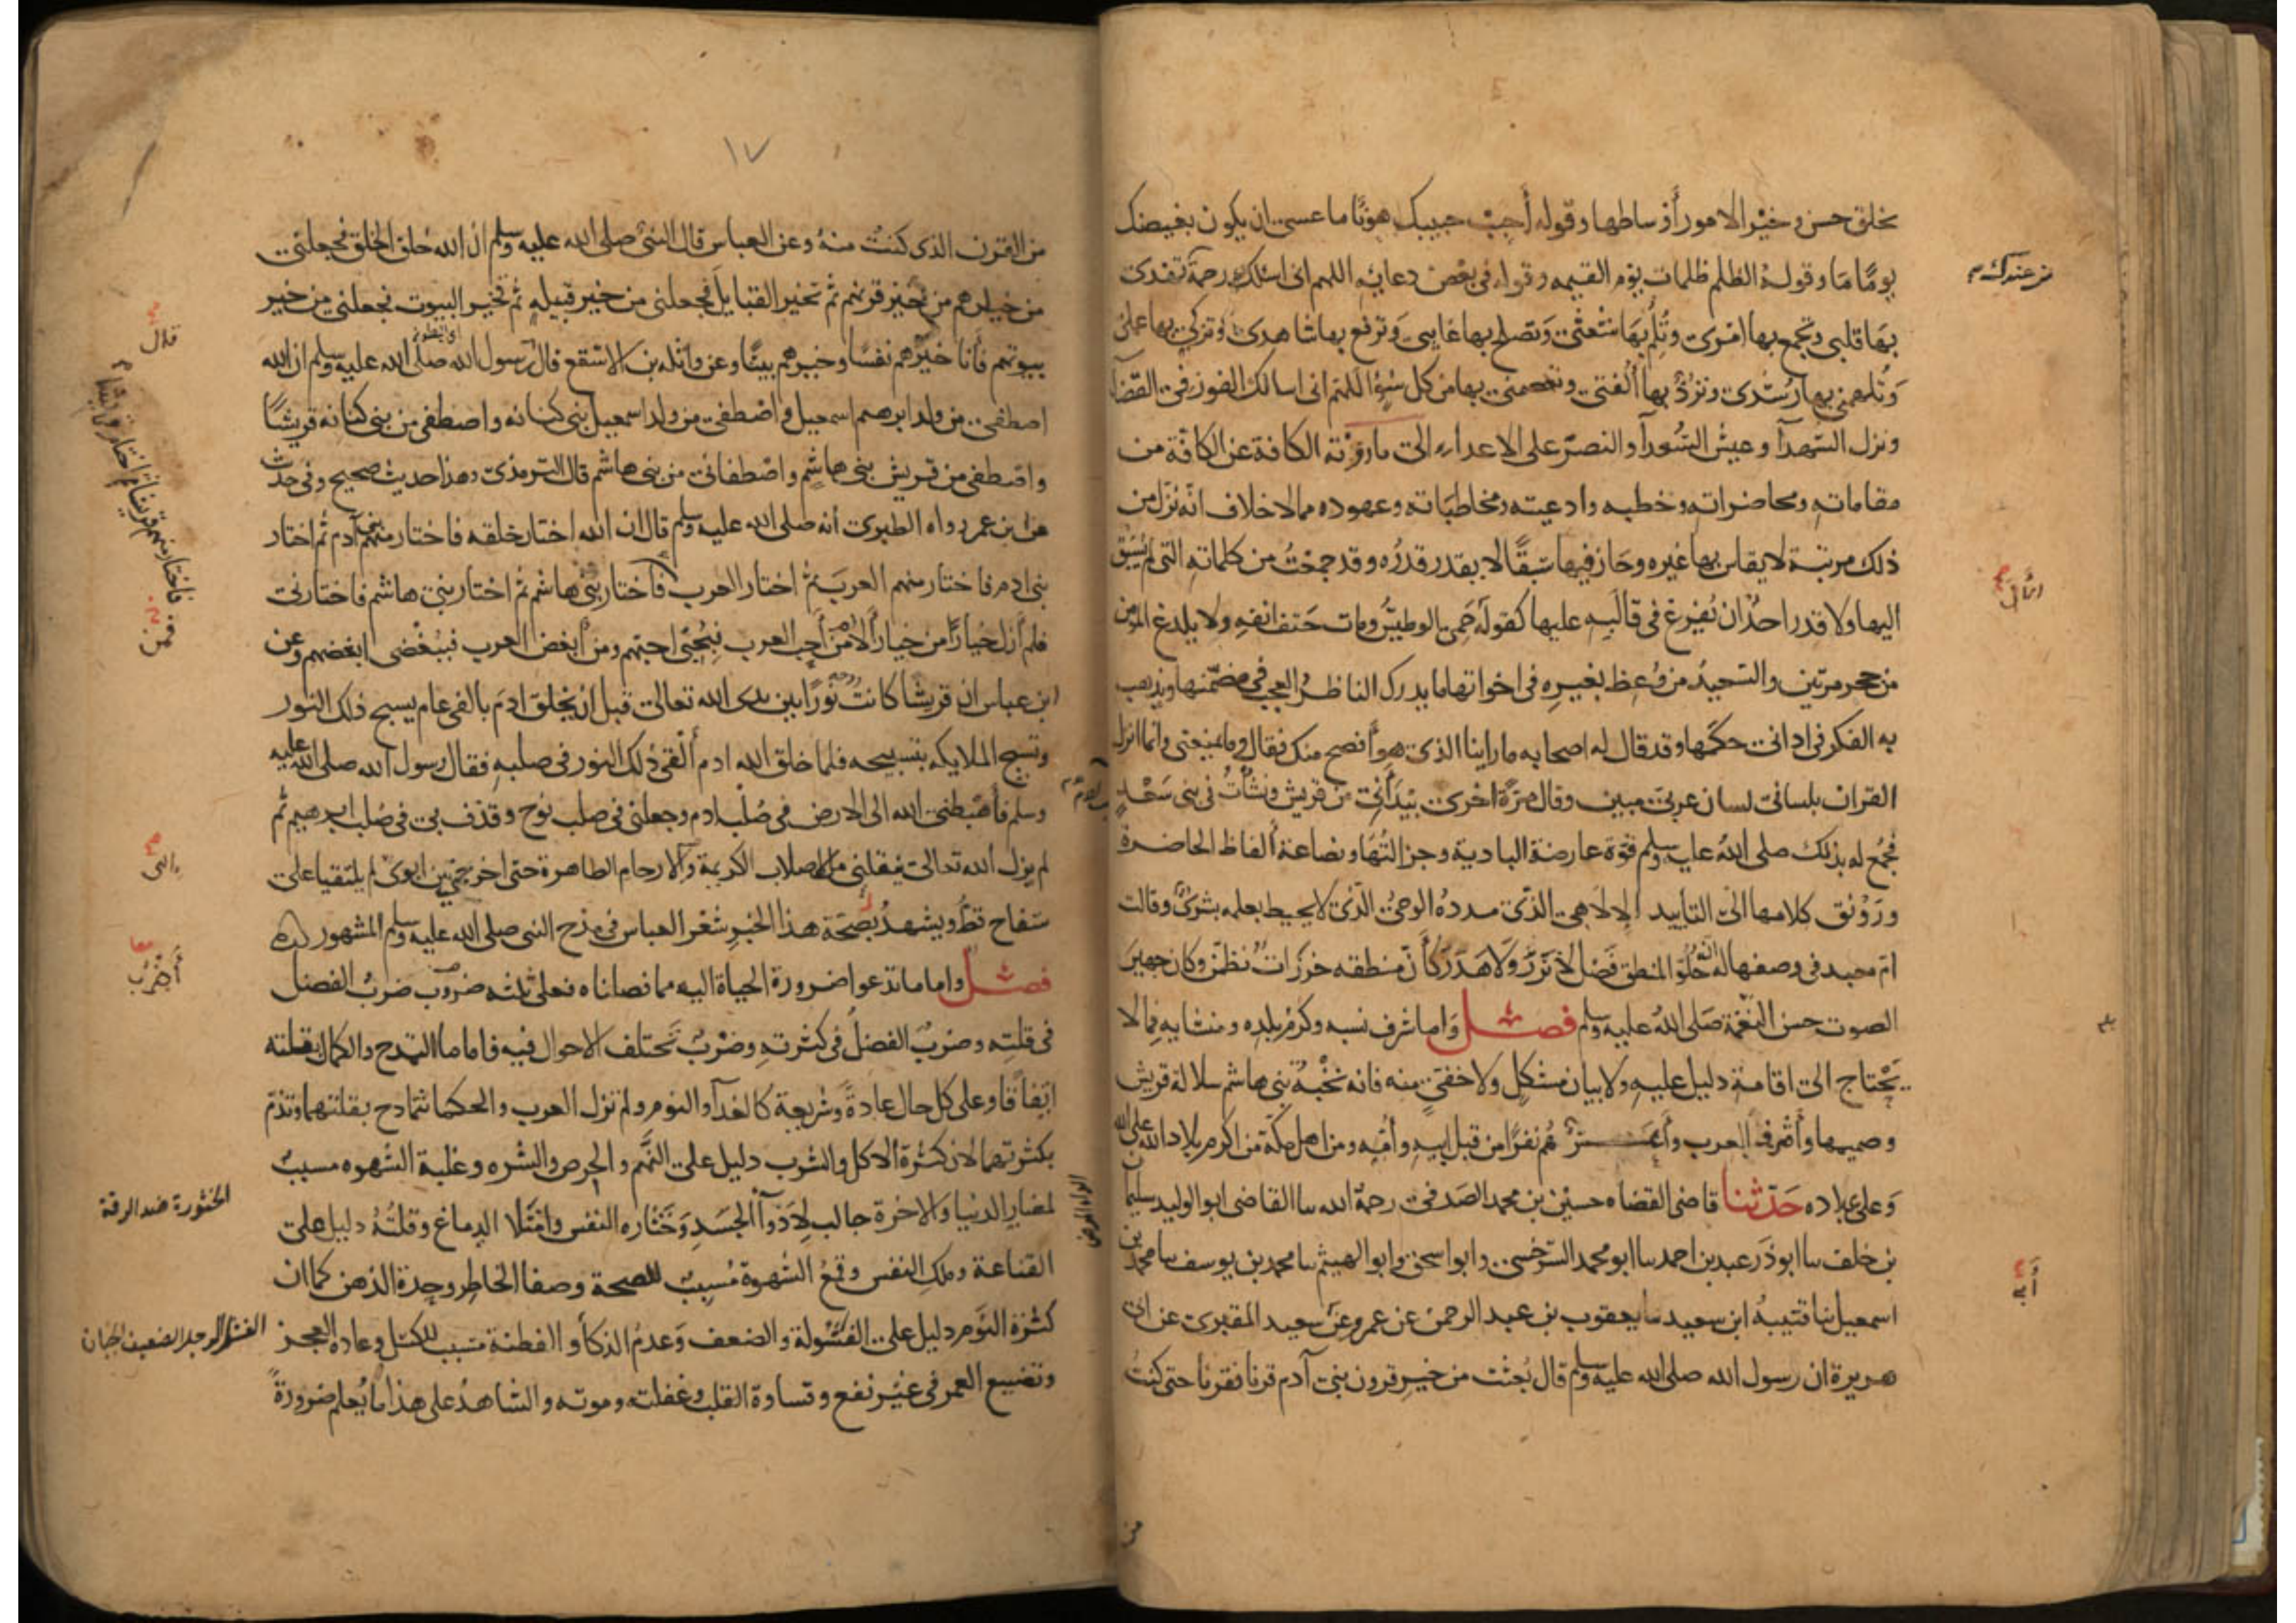 بخلق حسن وخير الامور أوساطها وقوله أحبب حبيبك هونًا ما عسى ان يكون بغيضك
يومًا مَا وقوله الظلم ظلمات يوم القيمه وقوله فى بعض دعايه اللهم انى اسئلك رحمة تهدى
بهَا قلبى وتجمع بها امرى وتلم بهَا شعثى وتصلح بها غايبى وترفع بها شاهدى وتزكى بها عملى
وتلهمنى بها رشدى وترد بها ألفتى وتعصمنى بها من كل سوء اللهم انى اسالك الفوز فى القضآ
ونزل الشهدآ وعيش السعدآ والنصر على الاعداء الى ما روته الكافة عن الكافة من
مقاماته ومحاضراته وخطبه وادعيته ومخاطباته وعهوده مما لا خلاف انه نزل من
ذلك مرتبة لا يقاس بها غيره وحاز فيها سبقًا لا يقدر قدره وقد جمعت من كلماته التى لم يسبق
اليها ولا قدر احد ان يفرغ فى قالبه عليها كقوله حمى الوطيس ومات حتف انفه ولا يلدغ المومن
من جحر مرتين والسعيد من وعظ بغيره فى اخواتها ما يدرك الناظر العجب فى مضمنها ويذهب
به الفكر فى ادانى حكمها وقد قال له اصحابه ما راينا الذى هو أفصح منك فقال وما يمنعنى وانما انزل
القران بلسانى لسان عربى مبين وقال مرة اخرى بيد أنى من قريش ونشأت فى بنى سعد
فجمع له بذلك صلى الله عليه وسلم قوة عارضة البادية وجزالتها ونصاعة ألفاظ الحاضرة
ورونق كلامها الى التأييد الالاهى الذى مدده الوحى الذى لا يحيط بعلمه بشرى وقالت
ام معبد فى وصفها له حلو المنطق فصل لا نزر ولا هذر كأن منطقه خرزات نظمن وكان جهير
الصوت حسن النغمة صلى الله عليه وسلم فصل واما شرف نسبه وكرم بلده ومنشايه فما لا
يحتاج الى اقامة دليل عليه ولا بيان مشكل ولا خفى منه فانه نخبة بنى هاشم سلالة قريش
وصميمها وأشرف العرب وأعز هم نفرًا من قبل ابيه وأمه ومن اهل مكة من اكرم بلاد الله على الله
وعلى عباده حدثنا قاضى القضاه حسين بن محمد الصدفى رحمة الله سا القاضى ابو الوليد سليمان
بن خلف سا ابو ذر عبد بن احمد سا ابو محمد السرخسى وابو اسحق وابو الهيثم سا محمد بن يوسف سا محمد بن
اسمعيل سا قتيبة ابن سعيد سا يعقوب بن عبد الرحمن عن عمرو عن سعيد المقبرى عن ابى
هريرة ان رسول الله صلى الله عليه وسلم قال بعثت من خير قرون بنى آدم قرنا فقرنا حتى كنت
من
من عندك
١٧
من القرن الذى كنت منه وعن العباس قال النبى صلى الله عليه وسلم ان الله خلق الخلق فجعلنى
من خيارهم من خير قرنهم ثم تخير القبايل فجعلنى من خير قبيله ثم تخير البيوت فجعلنى من خير
بيوتهم فأنا خيرهم نفسًا وخيرهم بيتًا وعن واثله بن الاسقع قال رسول الله صلى الله عليه وسلم ان الله
اصطفى من ولد ابرهيم اسمعيل واصطفى من ولد اسمعيل بنى كنانه واصطفى من بنى كنانه قريشًا
واصطفى من قريش بنى هاشم واصطفانى من بنى هاشم قال الترمذى وهذا حديث صحيح وفى حديث
عن ابن عمر رواه الطبرى أنه صلى الله عليه وسلم قال ان الله اختار خلقه فاختار منهم بنى آدم ثم اختار
بنى ادم فاختار منهم العرب ثم اختار العرب فاختار بنى هاشم ثم اختار بنى هاشم فاختارنى
فلم أزل خيارًا من خيار ألا من أحب العرب فبحبى احبهم ومن أبغض العرب فببغضى ابغضهم وعن
ابن عباس ان قريشا كانت نورًا بين يدى الله تعالى قبل ان يخلق ادم بالفى عام يسبح ذلك النور
وتسبح الملايكه بتسبيحه فلما خلق الله ادم ألقى ذلك النور فى صلبه فقال رسول الله صلى الله عليه
وسلم فأهبطنى الله الى الارض فى صلب ادم وجعلنى فى صلب نوح وقذف بى فى صلب ابرهيم ثم
لم يزل الله تعالى ينقلنى من الاصلاب الكريمة والارحام الطاهرة حتى اخرجنى بين ابوى لم يلتقيا على
سفاح قط ويشهد بصحة هذا الخبر شعر العباس فى مدح النبى صلى الله عليه وسلم المشهور
فصل واما ما تدعوا ضرورة الحياة اليه مما فصلناه فعلى ثلثه ضروب ضرب الفضل
فى قلته وضرب الفضل فى كثرته وضرب تختلف الاحوال فيه فاما ما التمدح والكمال بقلته
اتفاقًا وعلى كل حال عادة وشريعة كالغدآ والنوم ولم تزل العرب والحكما تتمادح بقلتهما وتذم
بكثرتهما لان كثرة الاكل والشرب دليل على النهم والحرص والشره وغلبة الشهوه مسبب
لمضار الدنيا والاخرة جالب لادوآ الجسد وخثاره النفس وامتلا الدماغ وقلته دليل على
القناعة وملك النفس وقمع الشهوة مسبب للصحة وصفا الخاطر وحدة الذهن كما ان
كثرة النوم دليل على الفسولة والضعف وعدم الذكأ والفطنة مسبب للكسل وعاده العجز
وتضييع العمر فى غير نفع وقساوة القلب وغفلته وموته والشاهد على هذا ما يعلم ضرورة
قال
فاختار منهم قريشا ثم اختار قريشا
فمن
الى
أضرب
الخثورة ضد الرقة
الفسل الرجل الضعيف الجبان